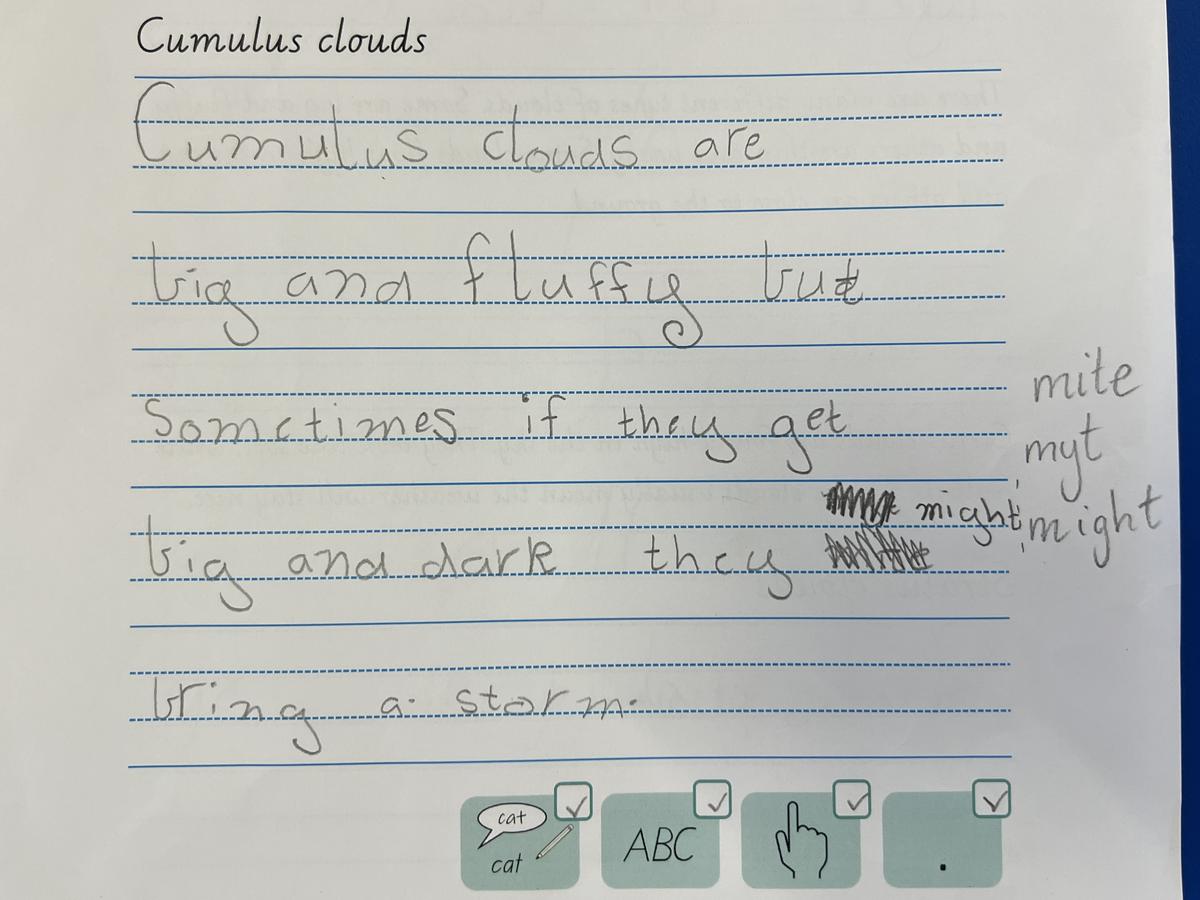 Cumulus clouds
Cumulus clouds are
big and fluffy but
Sometimes if they get
mite
myt
might might
big and dark they
bring a storm.
cat
cat
ABC
.